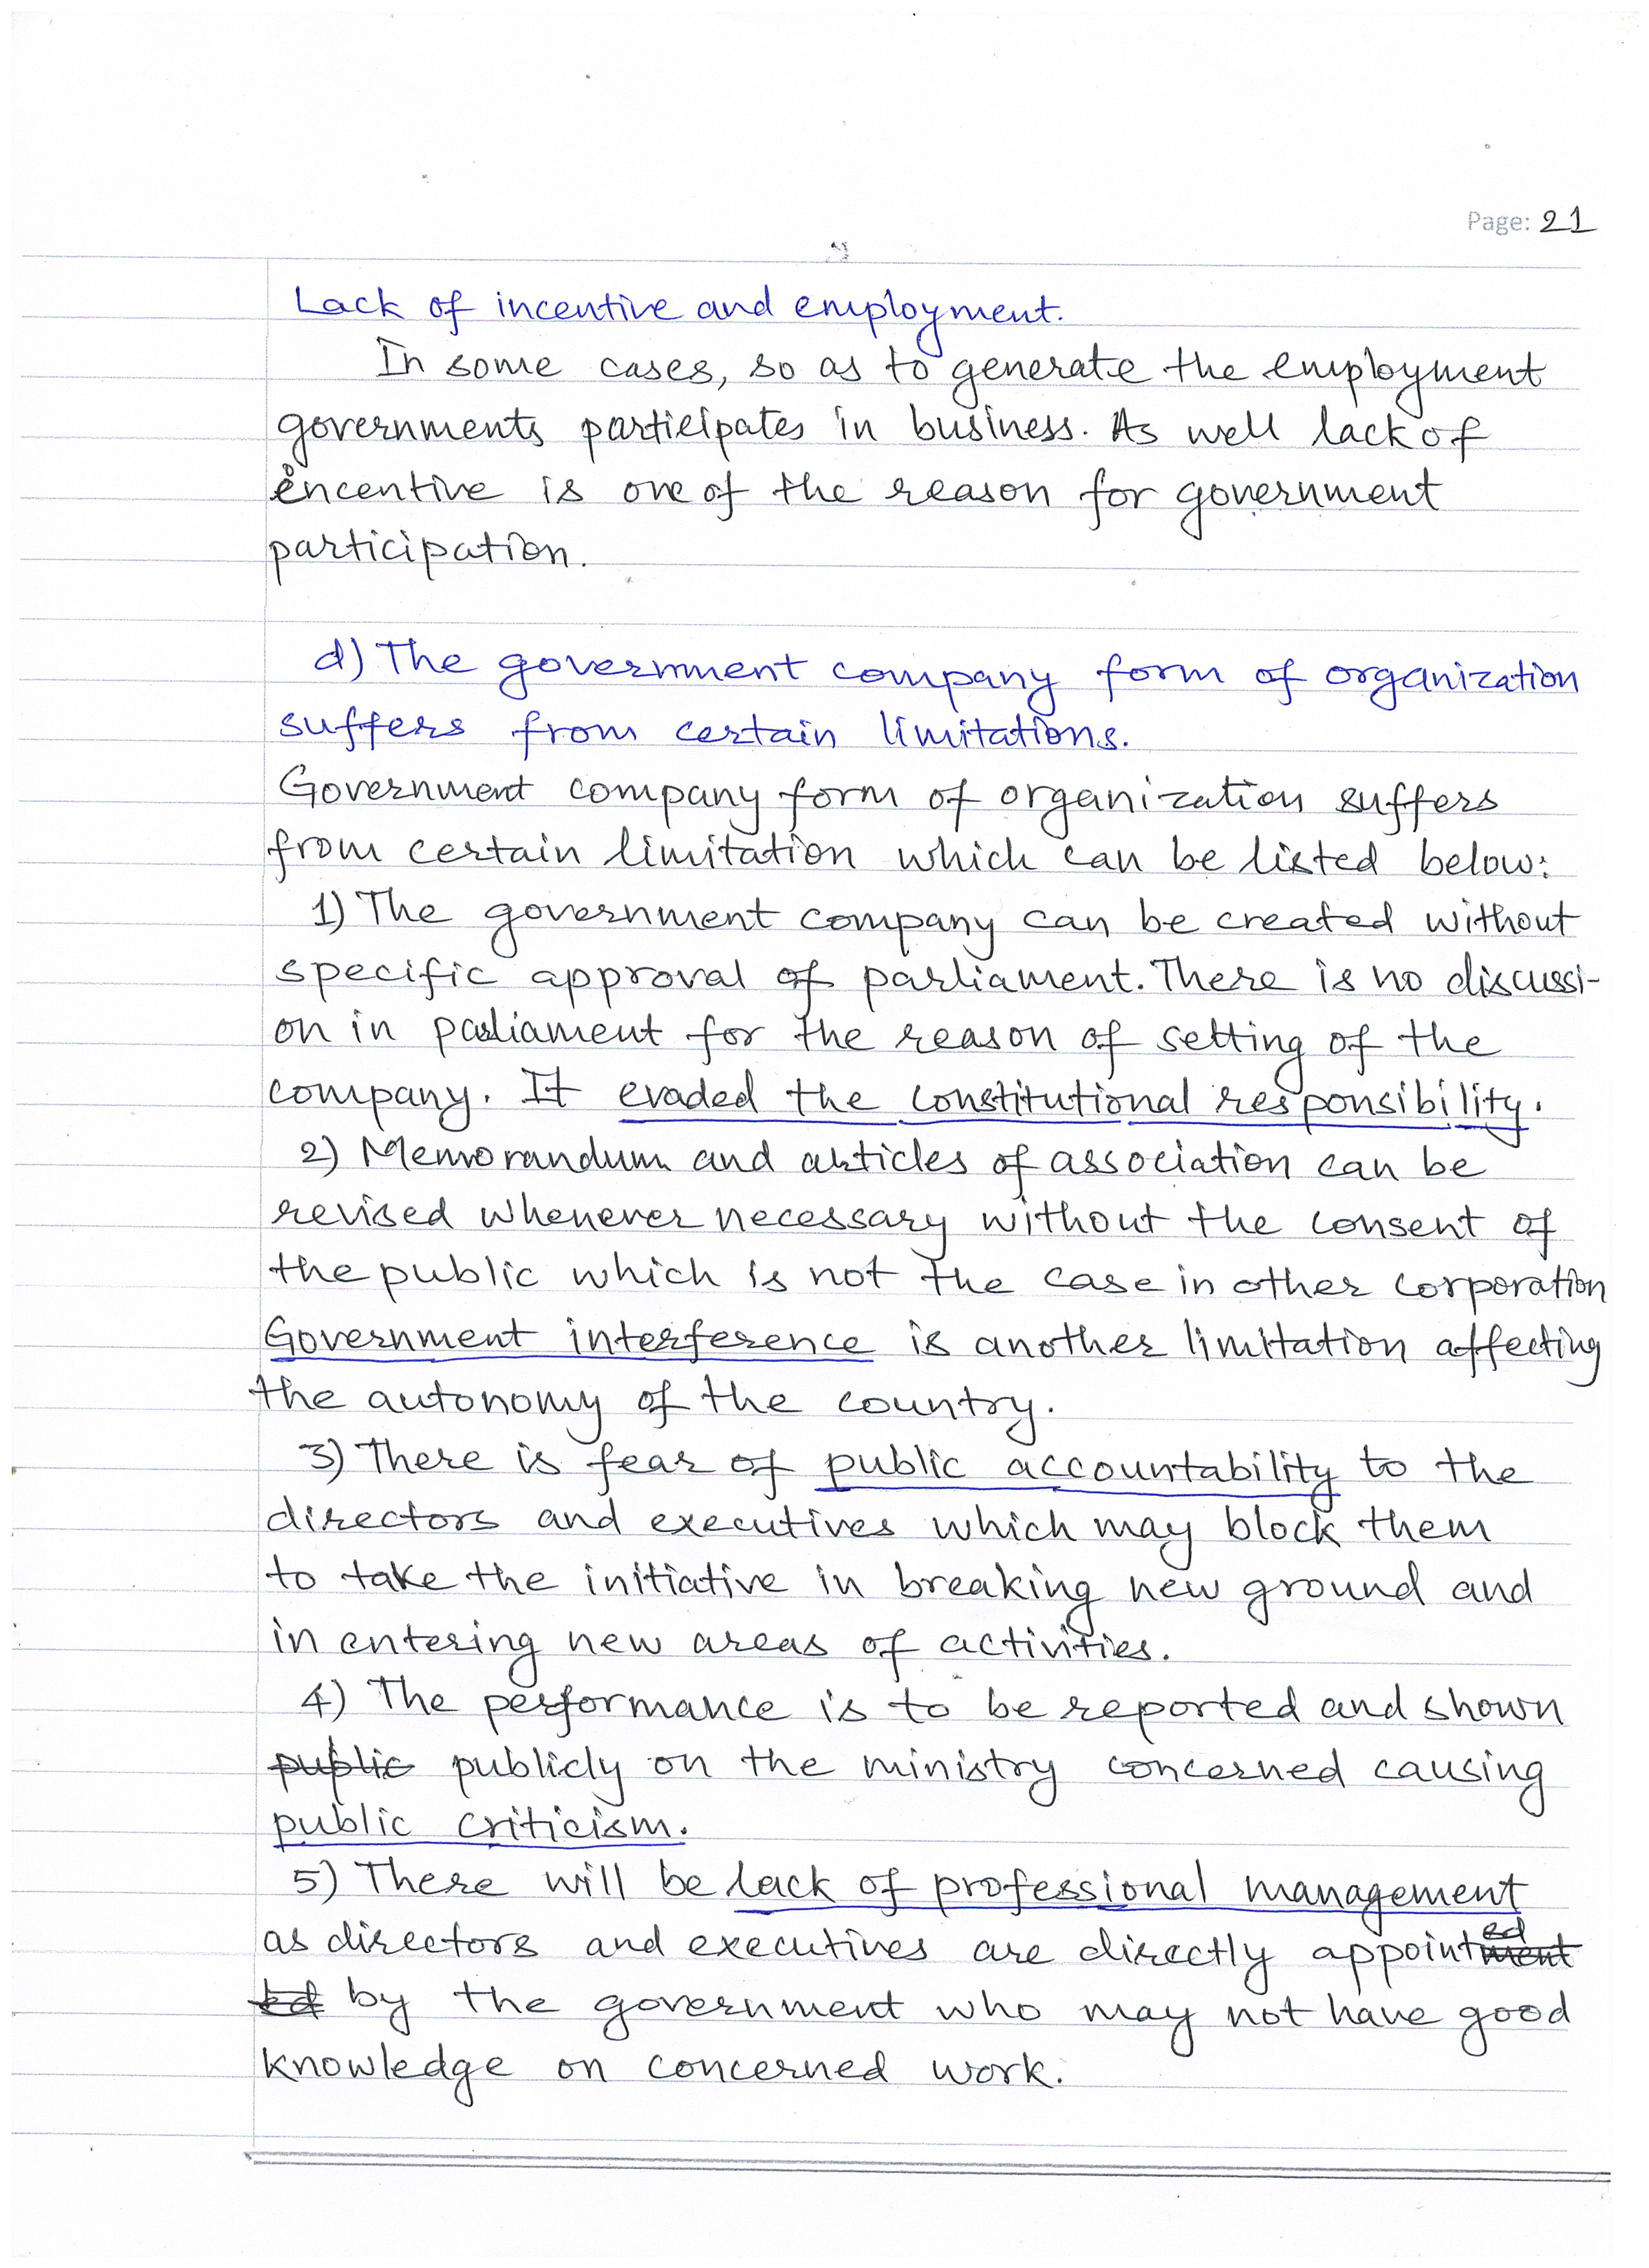 Page: 21
Lack of incentive and employment.
In some cases, so as to generate the employment
governments participates in business. As well lack of
incentive is one of the reason for government
participation.
d) The government company form of organization
suffers from certain limitations.
Government company form of organization suffers
from certain limitation which can be listed below:
1) The government company can be created without
specific approval of parliament. There is no discussi-
on in parliament for the reason of setting of the
company. It evaded the constitutional responsibility.
2) Memorandum and articles of association can be
revised whenever necessary without the consent of
the public which is not the case in other corporation
Government interference is another limitation affecting
the autonomy of the country.
3) There is fear of public accountability to the
directors and executives which may block them
to take the initiative in breaking new ground and
in entering new areas of activities.
4) The performance is to be reported and shown
public publicly on the ministry concerned causing
public criticism.
5) There will be lack of professional management
as directors and executives are directly appointed
by the government who may not have good
knowledge on concerned work.